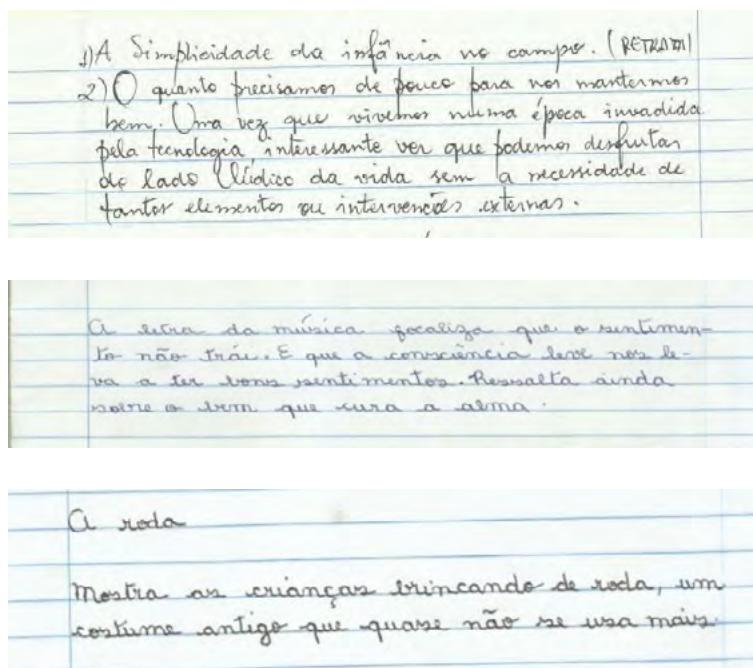 1) A Simplicidade da infância no campo. (RETRATA)
2) O quanto precisamos de pouco para nos mantermos
bem. Uma vez que vivemos numa época invadida
pela tecnologia interessante ver que podemos desfrutar
do lado lúdico da vida sem a necessidade de
tantos elementos ou intervenções externas.
A letra da música focaliza que o sentimen-
to não trái. E que a consciência leve nos le-
va a ter bons sentimentos. Ressalta ainda
sobre o bem que cura a alma.
A roda
Mostra as crianças brincando de roda, um
costume antigo que quase não se usa mais.